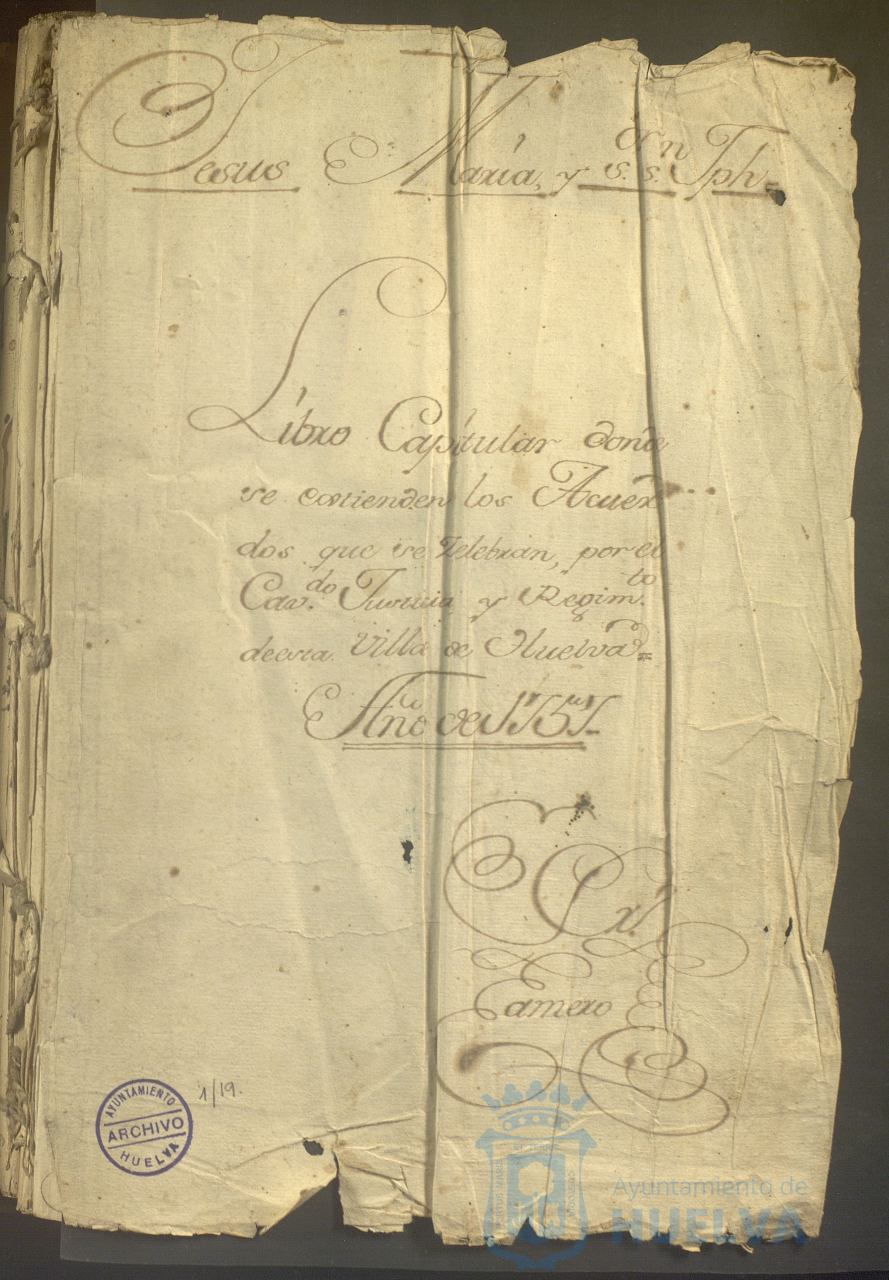 Jesus Maria, y S.n S. Jph=
Libro Capitular donde
se estienden los Acuer
dos que se Zelebran, por el
Cav.do Justicia y Regim.to
de esta Villa de Huelva=
Año de 1757
Romero
1/19.
AYUNTAMIENTO
ARCHIVO
HUELVA
Ayuntamiento de
HUELVA